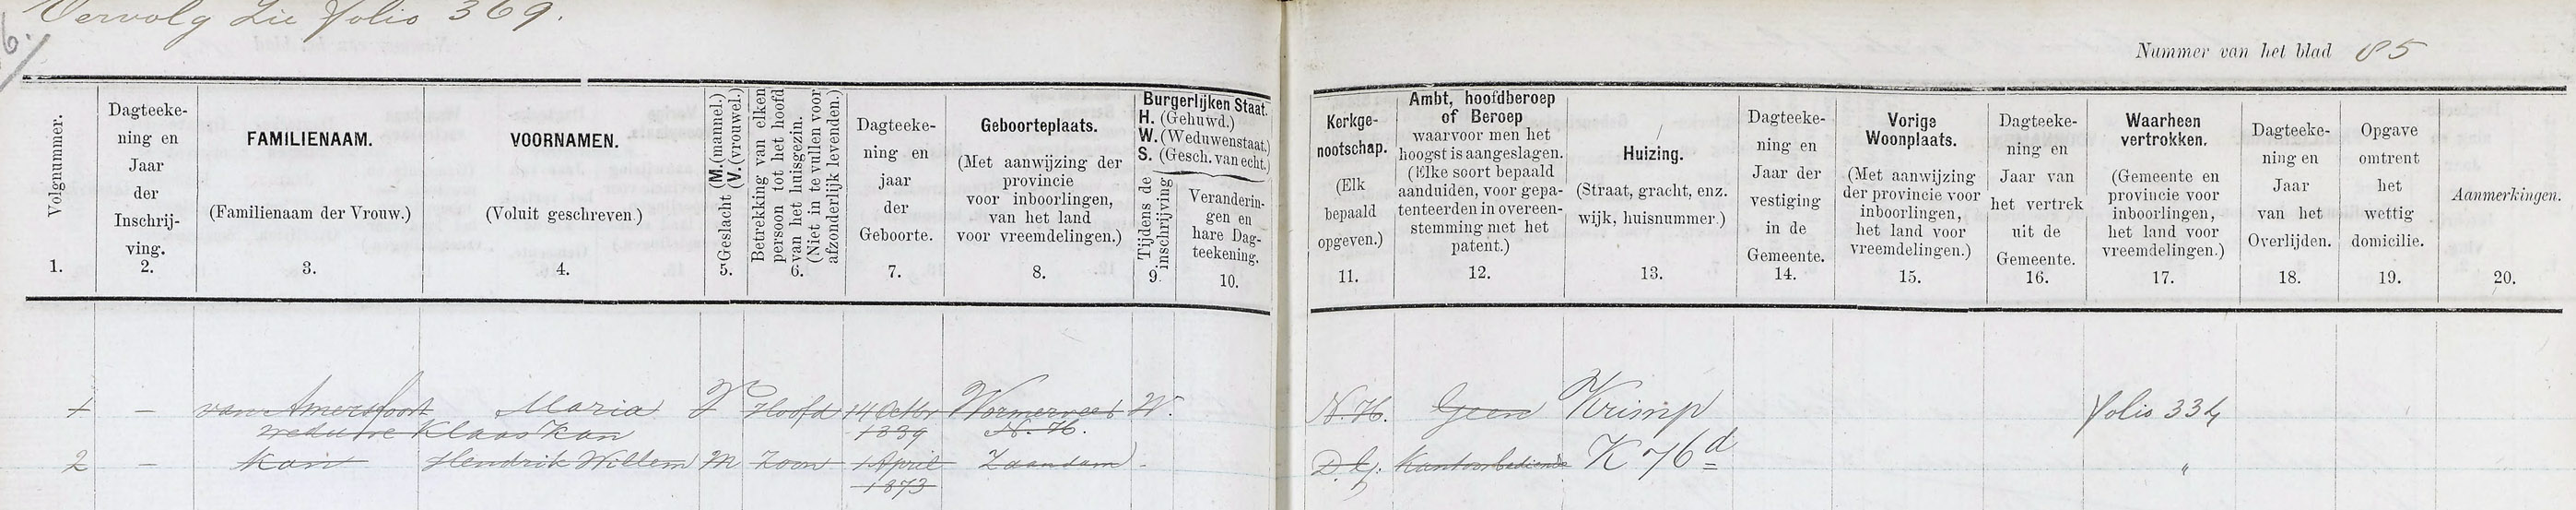 Vervolg Zie folio 369.
6.
Nummer van het blad 85
Volgnummer.
1.
Dagteeke-
ning en
Jaar
der
Inschrij-
ving.
2.
FAMILIENAAM.
(Familienaam der Vrouw.)
3.
VOORNAMEN.
(Voluit geschreven.)
4.
Geslacht (M.(mannel.)
(V.(vrouwel.)
5.
Betrekking van elken
persoon tot het hoofd
van het huisgezin.
(Niet in te vullen voor
afzonderlijk levenden.)
6.
Dagteeke-
ning en
jaar
der
Geboorte.
7.
Geboorteplaats.
(Met aanwijzing der
provincie
voor inboorlingen,
van het land
voor vreemdelingen.)
8.
Burgerlijken Staat.
H. (Gehuwd.)
W. (Weduwenstaat.)
S. (Gesch. van echt.)
Tijdens de
inschrijving
9.
Veranderin-
gen en
hare Dag-
teekening.
10.
Kerkge-
nootschap.
(Elk
bepaald
opgeven.)
11.
Ambt, hoofdberoep
of Beroep
waarvoor men het
hoogst is aangeslagen.
(Elke soort bepaald
aanduiden, voor gepa-
tenteerden in overeen-
stemming met het
patent.)
12.
Huizing.
(Straat, gracht, enz.
wijk, huisnummer.)
13.
Dagteeke-
ning en
Jaar der
vestiging
in de
Gemeente.
14.
Vorige
Woonplaats.
(Met aanwijzing
der provincie voor
inboorlingen,
het land voor
vreemdelingen.)
15.
Dagteeke-
ning en
Jaar van
het vertrek
uit de
Gemeente.
16.
Waarheen
vertrokken.
(Gemeente en
provincie voor
inboorlingen,
het land voor
vreemdelingen.)
17.
Dagteeke-
ning en
Jaar
van het
Overlijden.
18.
Opgave
omtrent
het
wettig
domicilie.
19.
Aanmerkingen.
20.
1 — van Amersfoort Maria V Hoofd 14 Octbr Wormerveer W. N. H. Geen Krimp folio 334
weduwe Klaas Kan 1839 N. H.
2 — Kan Hendrik Willem M Zoon 1 April Zaandam . D. G. Kantoorbediende K 76d "
1873